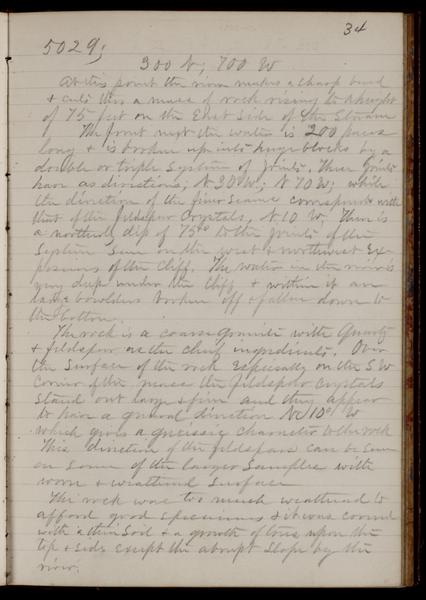 34
5029;
300 N; 700 W
At this point the river makes a sharp bend
& cuts thru a mass of rock rising to a height
of 75 feet on the East Side of the Stream
The front next the water is 200 paces
long & is broken up into huge blocks by a
double or triple System of Joints. These Joints
have as directions, N 30 W; N 70 W; while
the direction of the finer seams corresponds with
that of the feldspar Crystals, N 10 W. There is
a northerly dip of 75° to the Joints of the
System seen on the west & northwest Ex-
posures of the Cliff. The water in the river is
very deep under the Cliff & within it are
large bowlders broken off & fallen down to
the bottom.
The rock is a coarse Granite with Quartz
& feldspar as the chief ingredients. Over
the Surface of the rock Especially on the S W
Corner of the mass the feldspar Crystals
Stand out large & firm and they appear
to have a general direction N 10° W
which gives a gneissic character to the rock
This direction of the feldspars can be seen
on some of the larger Samples with
worn & weathered Surface
The rock was too much weathered to
afford good specimens & it was covered
with a thin Soil & a growth of trees upon the
top & sides except the abrupt Slope by the
river.